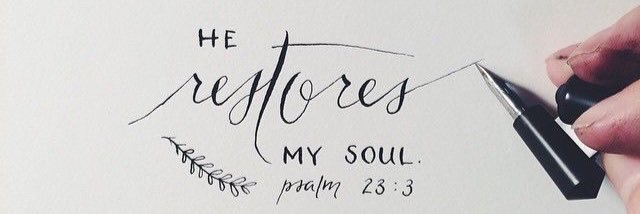 HE
restores
MY SOUL.
psalm 23:3